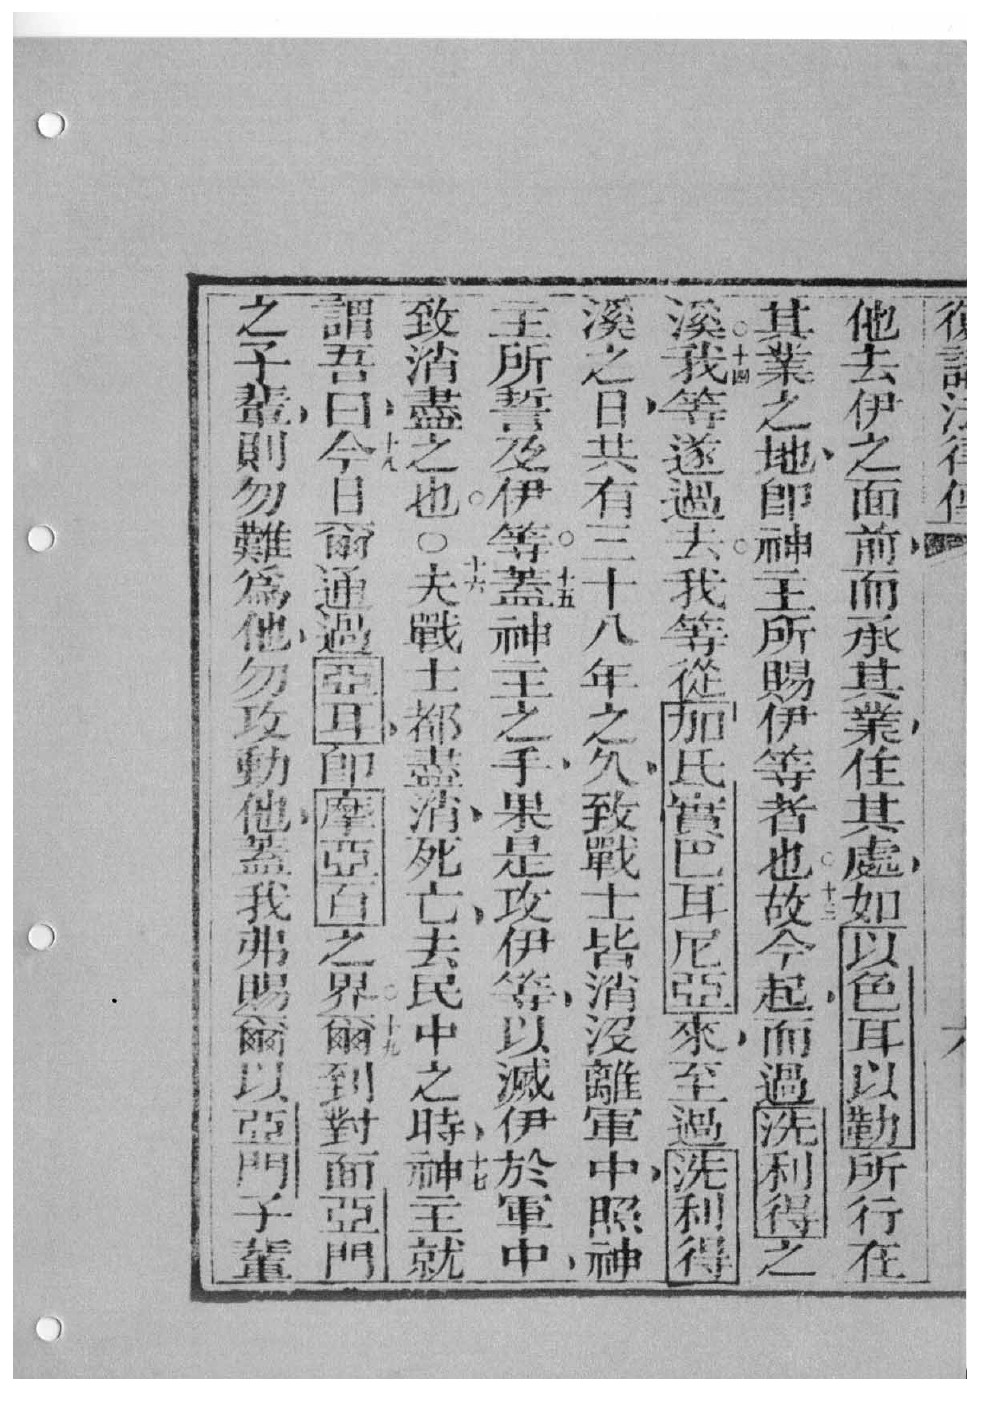 復講法律傳
六
他去伊之面前而承其業住其處如以色耳以勒所行在
其業之地卽神主所賜伊等者也○十三故今起而過洗利得之
溪○十四我等遂過去○我等從加氏實巴耳尼亞來至過洗利得
溪之日共有三十八年之久致戰士皆消沒離軍中照神
主所誓及伊等○十五蓋神主之手果是攻伊等以滅伊於軍中
致消盡之也○○十六夫戰士都盡消死亡去民中之時十七神主就
謂吾曰十八今日爾通過亞耳卽摩亞百之界○十九爾到對面亞門
之子輩則勿難爲他勿攻動他蓋我弗賜爾以亞門子輩